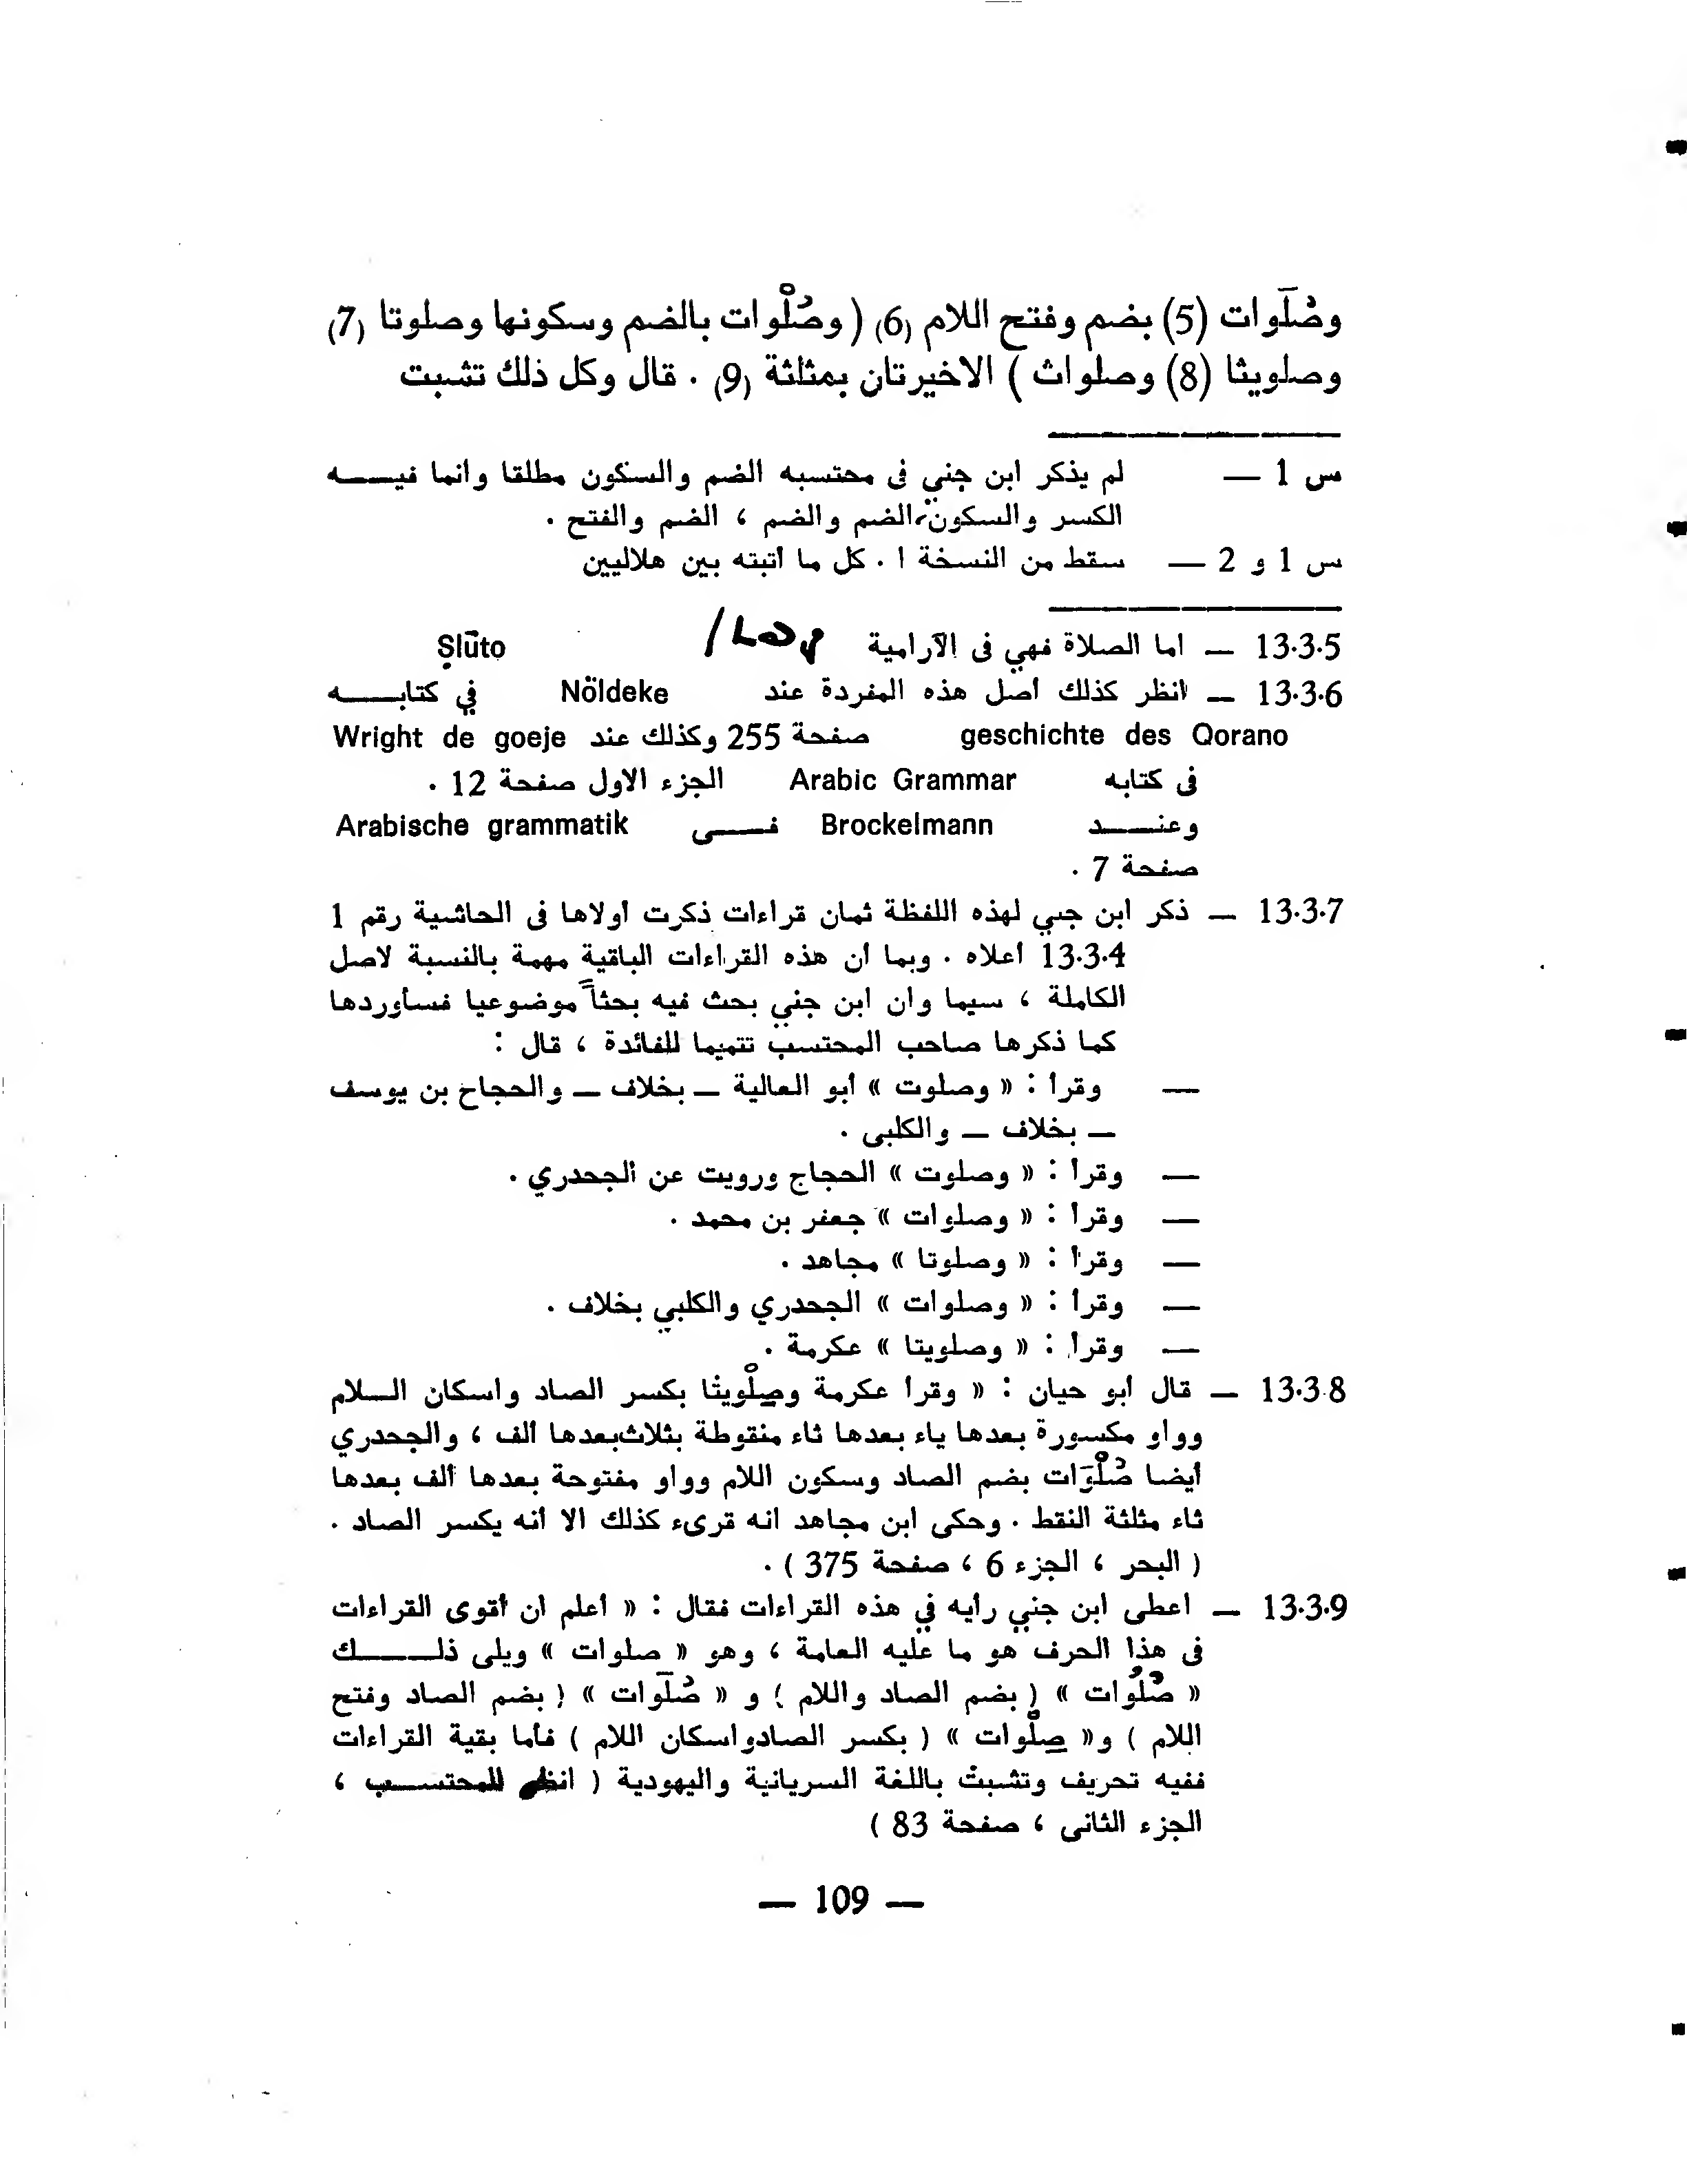 وصُلَوات (5) بضم وفتح اللام (6) ( وصُلْوات بالضم وسكونها وصلوتا (7)
وصلويثا (8) وصلواث ) الاخيرتان بمثلثة (9) . قال وكل ذلك تشبث
س 1 — لم يذكر ابن جني فى محتسبه الضم والسكون مطلقا وانما فيــــه
الكسر والسكون، الضم والضم ، الضم والفتح .
س 1 و 2 — سقط من النسخة ا . كل ما أتبته بين هلاليين
13.3.5 — اما الصلاة فهي فى الآرامية Ṣlūto
13.3.6 — انظر كذلك أصل هذه المفردة عند Nöldeke في كتابــــه
geschichte des Qorano صفحة 255 وكذلك عند Wright de goeje
فى كتابه Arabic Grammar الجزء الاول صفحة 12 .
وعنــــد Brockelmann فــــى Arabische grammatik
صفحة 7 .
13.3.7 — ذكر ابن جني لهذه اللفظة ثمان قراءات ذكرت أولاها فى الحاشية رقم 1
13.3.4 أعلاه . وبما أن هذه القراءات الباقية مهمة بالنسبة لاصل
الكاملة ، سيما وان ابن جني بحث فيه بحثاً موضوعيا فسأوردها
كما ذكرها صاحب المحتسب تتميما للفائدة ، قال :
— وقرأ : « وصلوت » أبو العالية — بخلاف — والحجاج بن يوسف
— بخلاف — والكلبى .
— وقرأ : « وصلوت » الحجاج ورويت عن الجحدري .
— وقرأ : « وصلوات » جعفر بن محمد .
— وقرأ : « وصلوتا » مجاهد .
— وقرأ : « وصلوات » الجحدري والكلبي بخلاف .
— وقرأ : « وصلويتا » عكرمة .
13.3.8 — قال أبو حيان : « وقرأ عكرمة وصِلْويثا بكسر الصاد واسكان الـــلام
وواو مكسورة بعدها ياء بعدها ثاء منقوطة بثلاث بعدها ألف ، والجحدري
أيضا صُلْوَات بضم الصاد وسكون اللام وواو مفتوحة بعدها ألف بعدها
ثاء مثلثة النقط . وحكى ابن مجاهد انه قرىء كذلك الا أنه يكسر الصاد .
( البحر ، الجزء 6 ، صفحة 375 ) .
13.3.9 — اعطى ابن جني رأيه في هذه القراءات فقال : « أعلم ان أقوى القراءات
فى هذا الحرف هو ما عليه العامة ، وهو « صلوات » ويلى ذلــــك
« صُلُوات » ( بضم الصاد واللام ) و « صُلَوات » ( بضم الصاد وفتح
اللام ) و« صِلْوات » ( بكسر الصاد واسكان اللام ) فأما بقية القراءات
ففيه تحريف وتشبث باللغة السريانية واليهودية ( انظر المحتســــب ،
الجزء الثانى ، صفحة 83 )
— 109 —